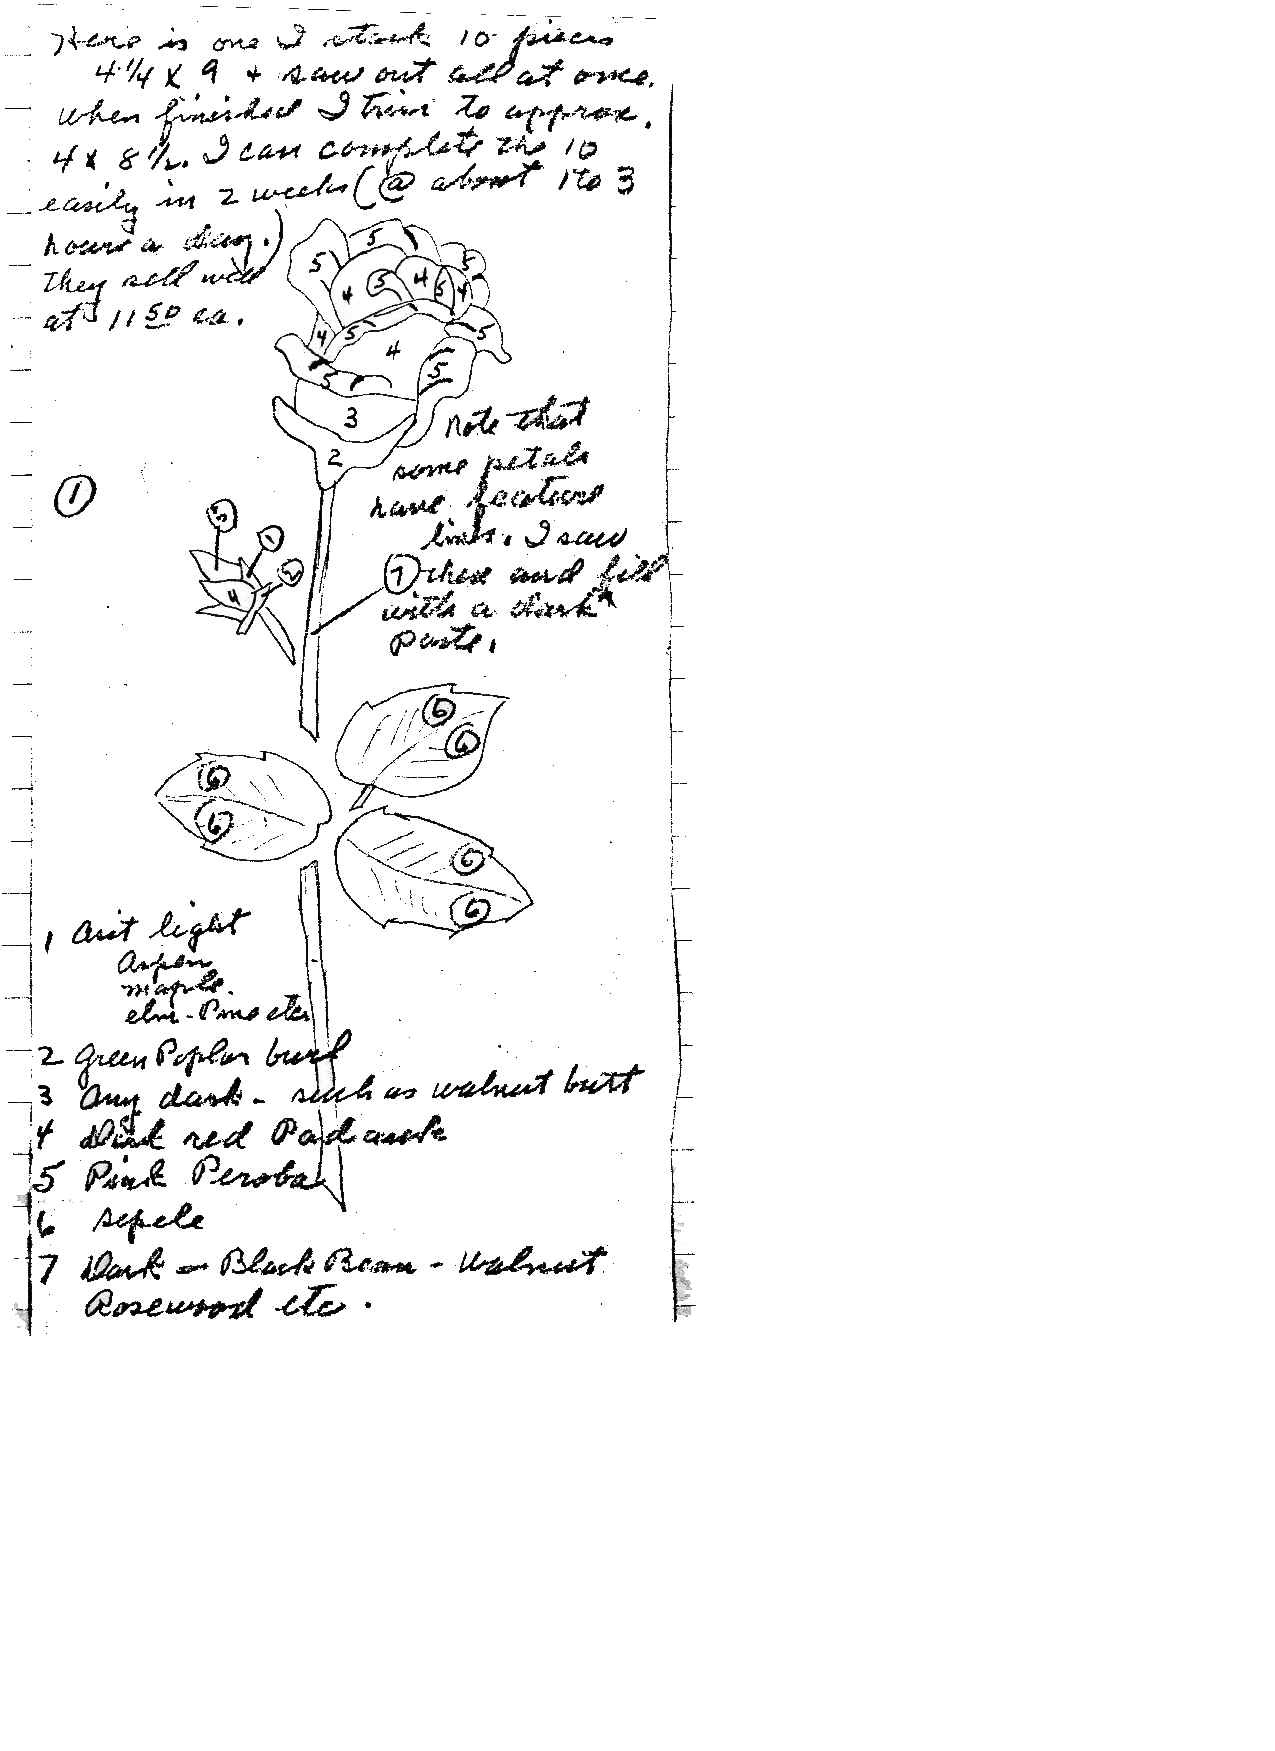 Here is one I stack 10 pieces
4 1/4 X 9 + saw out all at once.
When finished I trim to approx.
4 x 8 1/2. I can complete the 10
easily in 2 weeks (@ about 1 to 3
hours a day.)
They sell well
at 11 50 ea.
5
5
5
4
5
4
5
4
4
5
5
4
5
5
3
2
Note that
some petals
have feature
lines. I saw
these and fill
with a dark
paste.
7
1
3
1
2
4
6
6
6
6
6
6
1 light
Aspen
maple.
elm - Pine etc
2 Green Poplar burl
3 Any dark - such as walnut butt
4 Dark red Padauk
5 Pink Peroba
6 Sepele
7 Dark - Black Bean - Walnut
Rosewood etc.